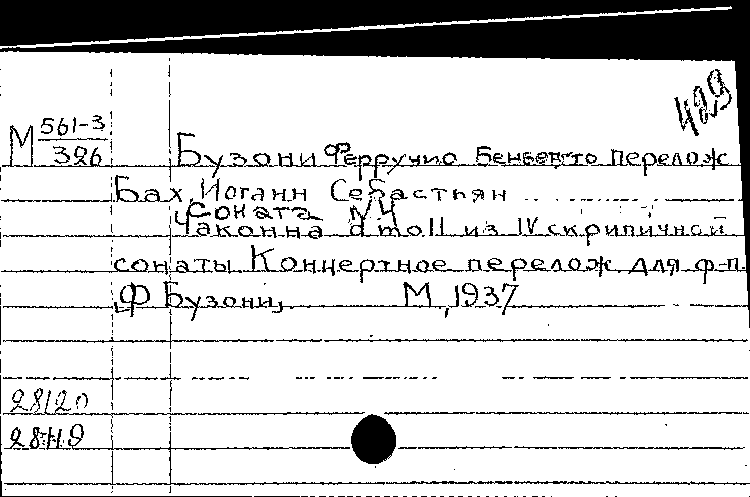 429
М 561-3
326
Бузони Ферруччио Бенвенуто перелож
Бах, Иоганн Себастьян
Соната №4
Чаконна d moll из IV скрипичной
сонаты Концертное перелож для ф-п
Ф Бузони, М, 1937
28120
28119